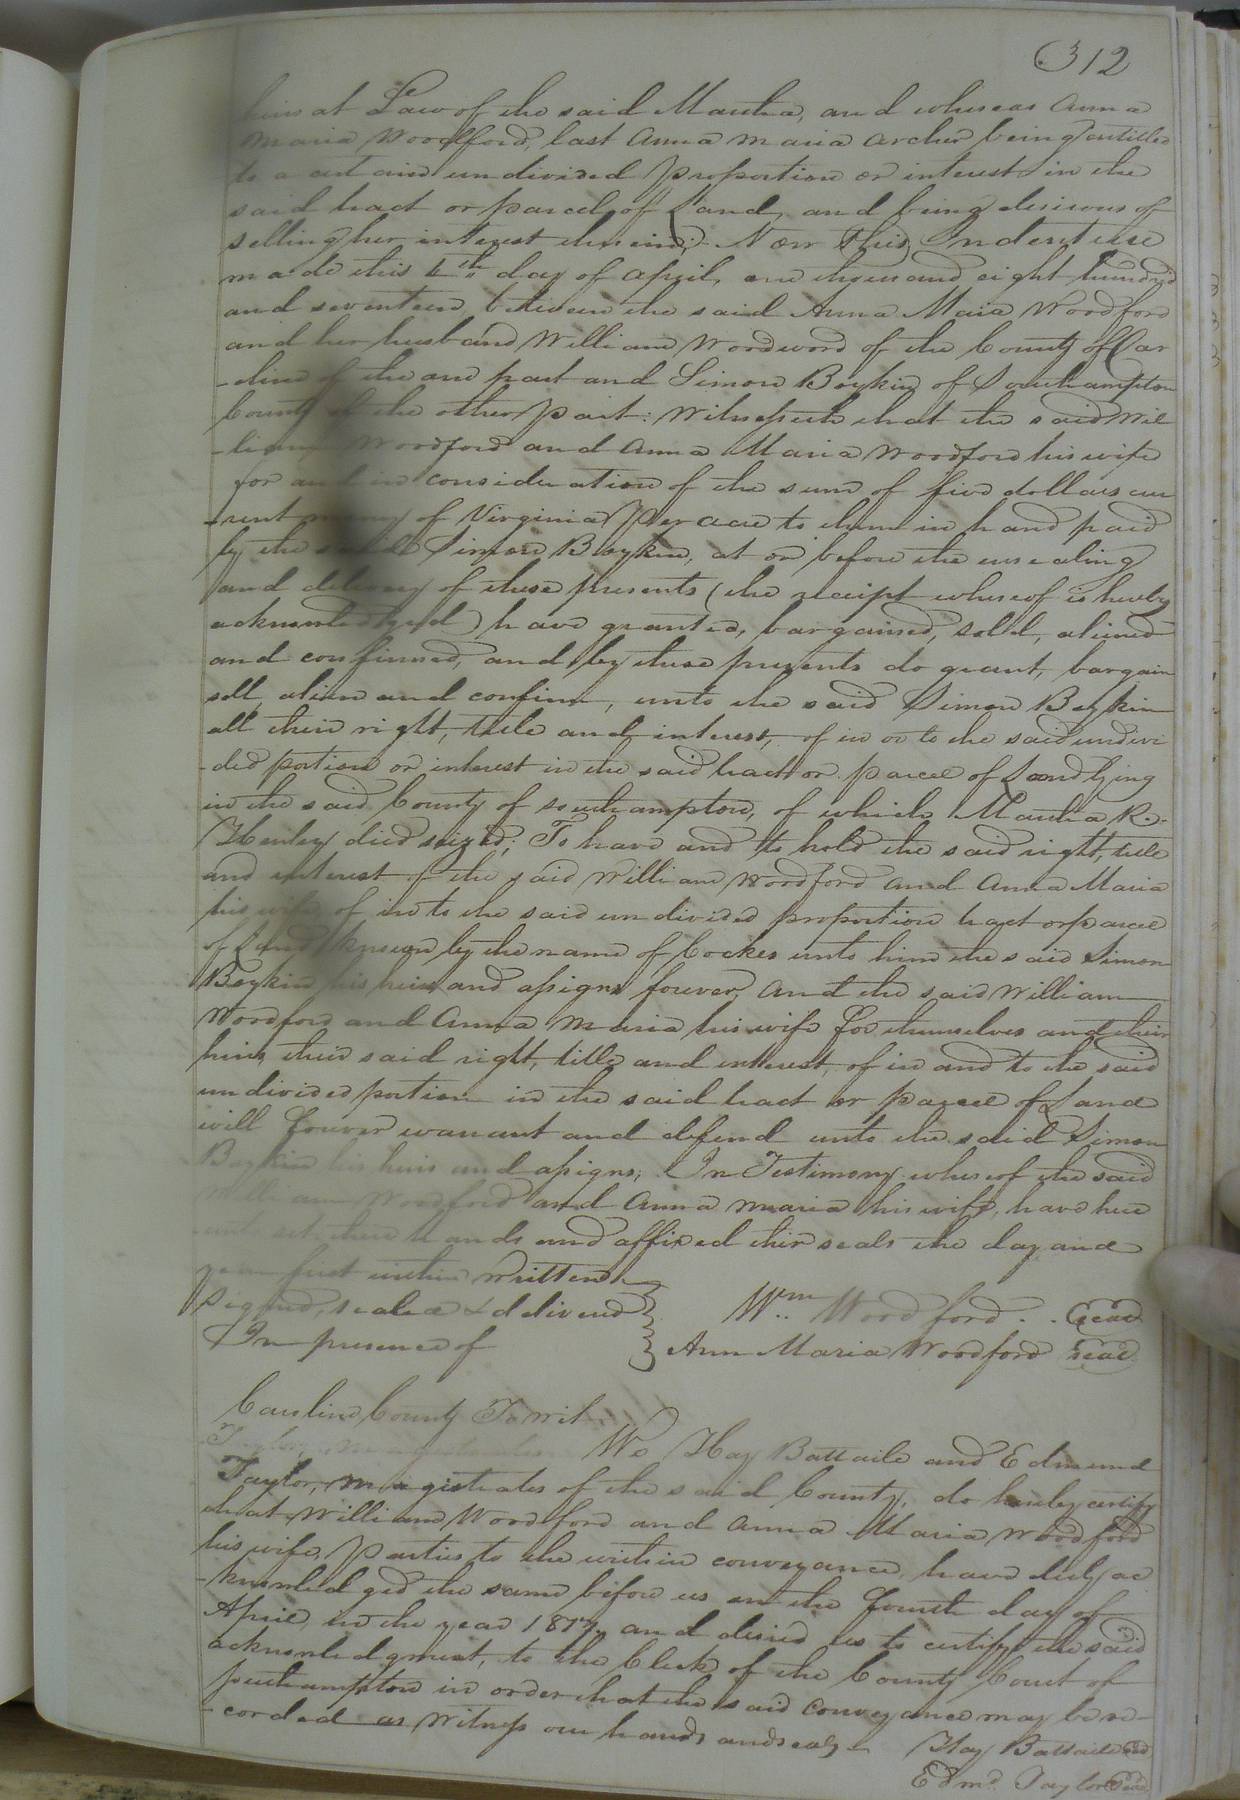 312
heirs at Law of the said Martha, and whereas Anna
Maria Woodford, last Anna Maria Archer being entitled
to a certain undivided proportion or interest in the
said tract or parcel of Land, and being desirous of
selling her interest therein; Now This Indenture
made this 4th day of April, one thousand eight hundred
and seventeen between the said Anna Maria Woodford
and her husband William Woodword of the County of Car
-oline of the one part and Simon Boykin of Southampton
County of the other part: Witnesseth that the said Wil
-liam Woodford and Anna Maria Woodford his wife
for and in consideration of the sum of five dollars cur
-rent money of Virginia Per acre to them in hand paid
by the said Simon Boykin, at or before the ensealing
and delivery of these presents (the receipt whereof is hereby
acknowledged) have granted, bargained, sold, aliened
and confirmed, and by these presents do grant, bargain
sell, alien and confirm, unto the said Simon Boykin
all their right, title and interest, of in or to the said undivi
-ded portion or interest in the said tract or parcel of Land lying
in the said County of Southampton, of which Martha R.
Henley died seized; To have and to hold the said right, title
and interest of the said William Woodford and Anna Maria
his wife of in to the said undivided proportion tract or parcel
of Land known by the name of Cockes unto him the said Simon
Boykin his heirs and assigns forever, And the said William
Woodford and Anna Maria his wife for themselves and their
heirs, their said right, title and interest, of in and to the said
undivided portion in the said tract or parcel of Land
will forever warrant and defend unto the said Simon
Boykin his heirs and assigns; In Testimony whereof the said
William Woodford and Anna Maria his wife, have here
unto set their hands and affixed their seals the day and
year first within written
Signed, sealed & delivered Wm Woodford . . Seal
In presence of Ann Maria Woodford Seal
Caroline County To wit
We Hay Battaile and Edmund
Taylor, Magistrates of the said County, do hereby certify
that William Woodford and Anna Maria Woodford
his wife, Parties to the within conveyance, have duly ac
-knowledged the same before us on the fourth day of
April, in the year 1817, and desired us to certify the said
acknowledgment, to the Clerk of the County Court of
Southampton in order that the said conveyance may be re-
-corded as Witness our hands and seals Hay Battaile Seal
Edmd. Taylor Seal